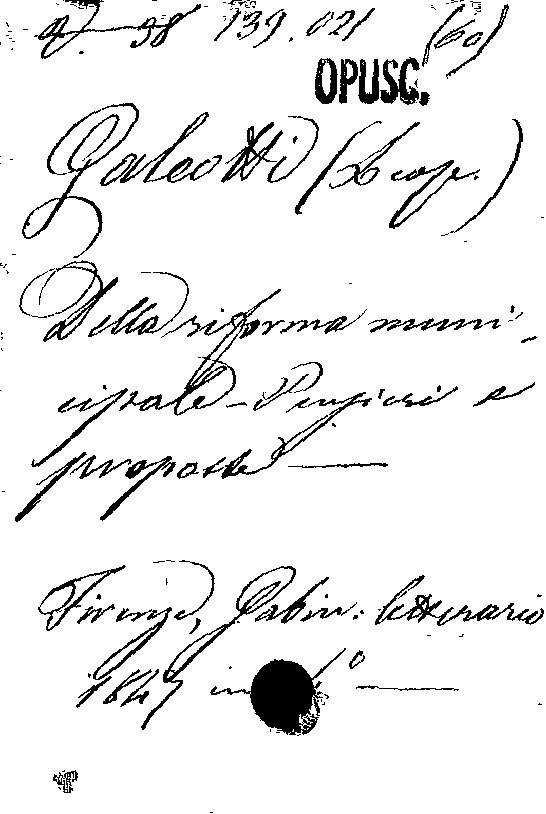 38 139.021 (60)
OPUSC.
Galeotti (Leop.)
Della riforma muni-
cipale - Pensieri e
proposte —
Firenze, Gabin: letterario
1847 in °—